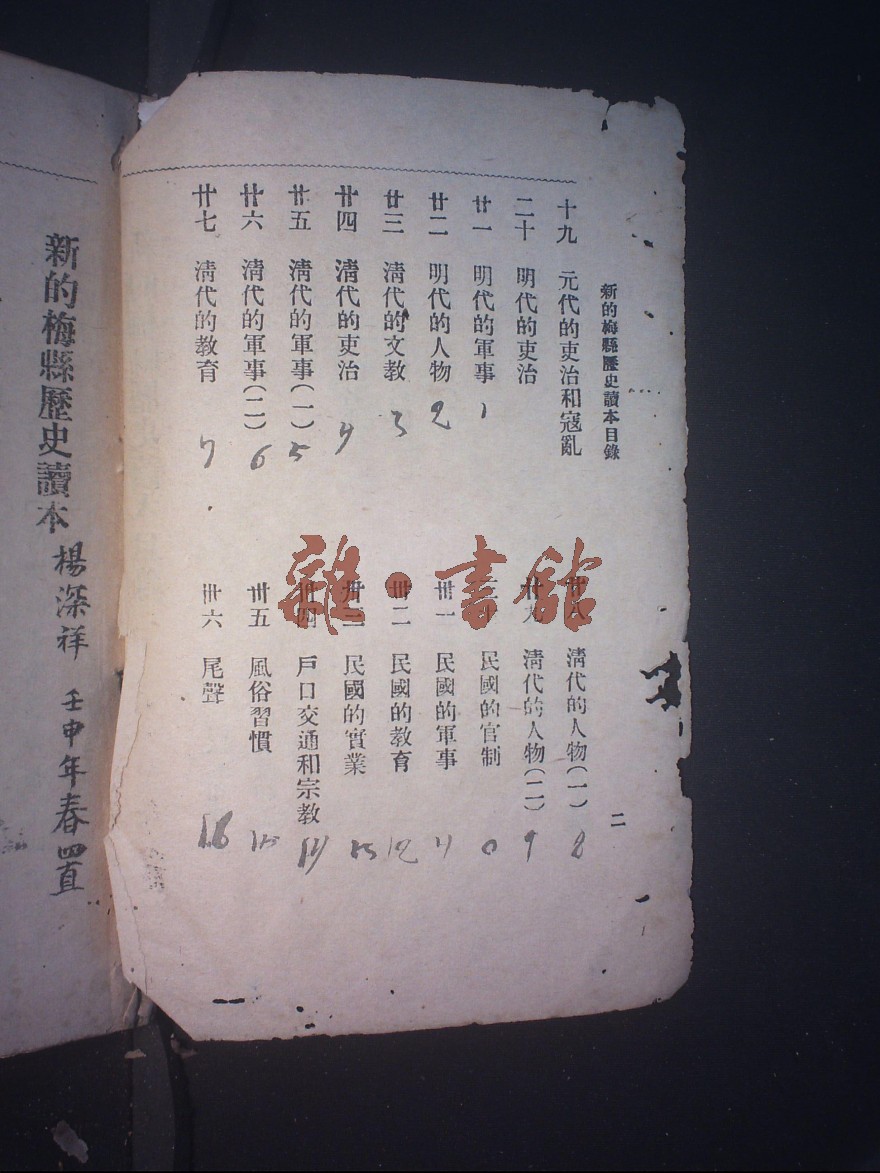 新的梅縣歷史讀本目錄
十九　元代的吏治和寇亂
二十　明代的吏治
廿一　明代的軍事　1
廿二　明代的人物　2
廿三　清代的文教　3
廿四　清代的吏治　4
廿五　清代的軍事（一）　5
廿六　清代的軍事（二）　6
廿七　清代的教育　7
廿八　清代的人物（一）　8
廿九　清代的人物（二）　9
三十　民國的官制　0
卅一　民國的軍事　11
卅二　民國的教育　12
卅三　民國的實業　13
卅四　戶口交通和宗教　14
卅五　風俗習慣　15
卅六　尾聲　16
二
雜·書館
新的梅縣歷史讀本
楊深祥　壬申年春四直